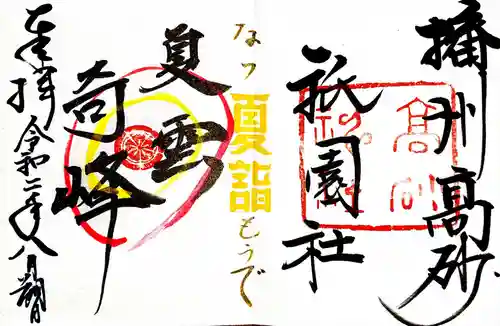 播州高砂
祇園社
なつ
夏詣
もうで
夏雲
奇峰
奉拝 令和二年八月朔日